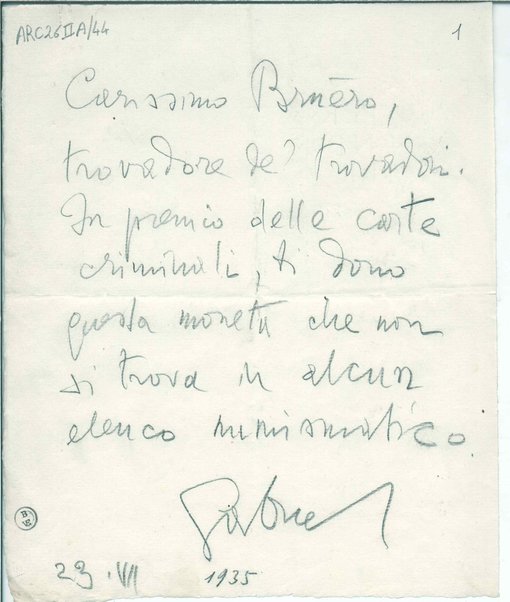 ARC26IIA/44
1
Carissimo Bruèro,
trovadore de' trovadori.
In premio delle carte
criminali, ti dono
questa moneta che non
si trova in alcun
elenco numismatico.
Gabriel
23.VII 1935